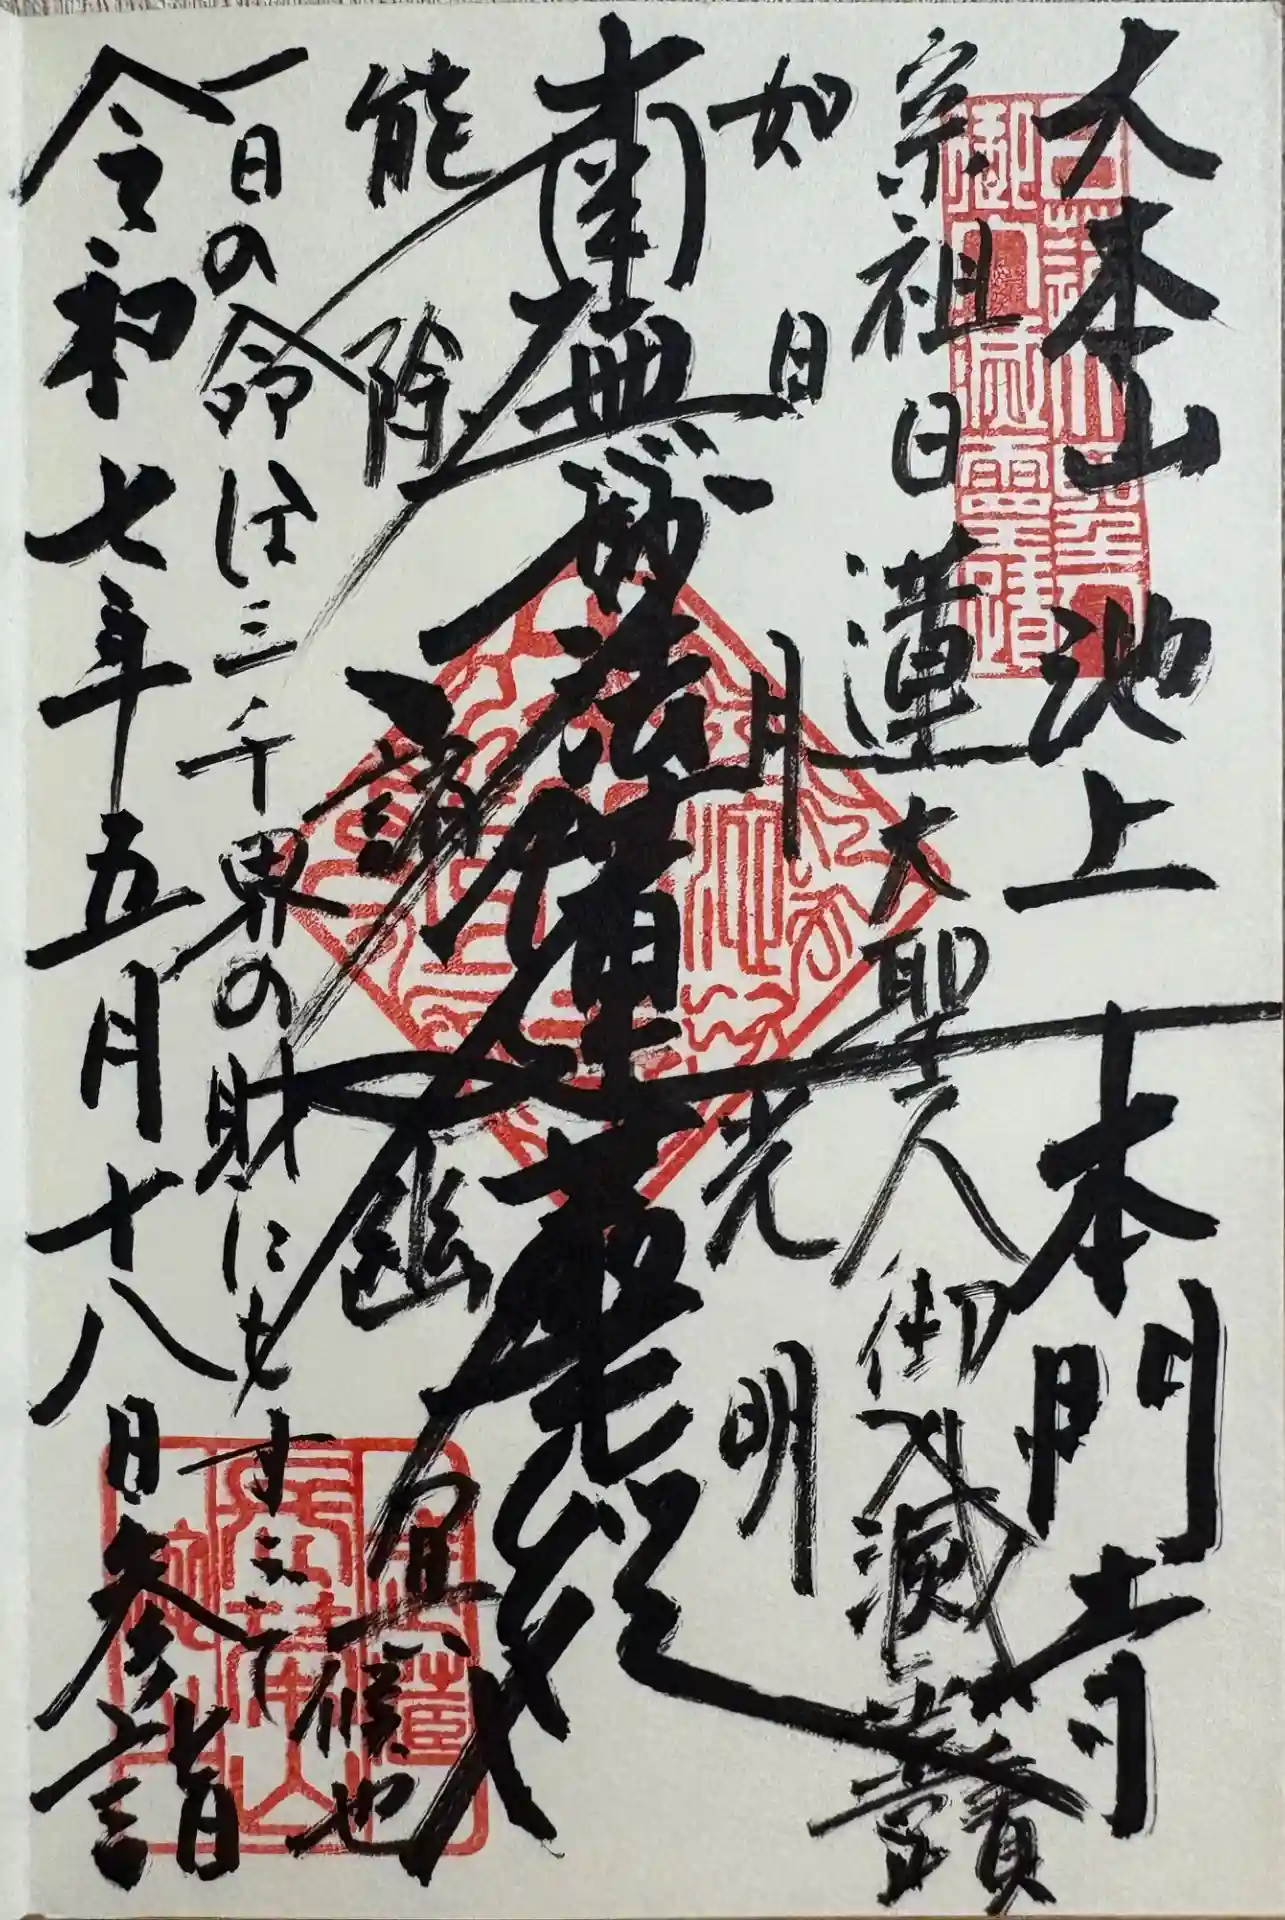 大本山 池上 本門寺
宗祖日蓮大聖人御入滅霊蹟
如日月光明
南無妙法蓮華経
能除諸幽冥
一日の命は三千界の財にもすぎて候也
令和七年五月十八日参詣